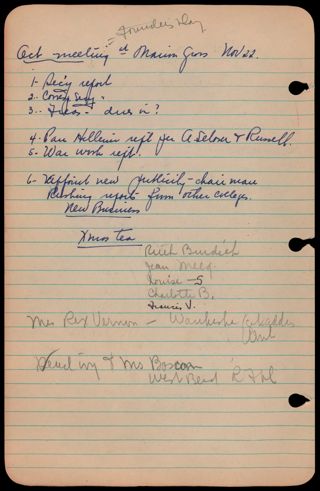 Founders Day
Oct meeting at Marion Gross Nov 22.
1- Sec'y report
2- Corresp Secy "
3- Treas - dues in?
4. Pan Hellenic rept per A. & Russell.
5- War work rept.
6- Appoint new publicity - chairman
Rushing reports from other colleges.
New Business
Xmas tea
Ruth Burdick
Jean
Louise - S
Charlotte B.
Francis V.
Mrs Rex Vernon - Waukesha
Mrs Boscom
West Bend R